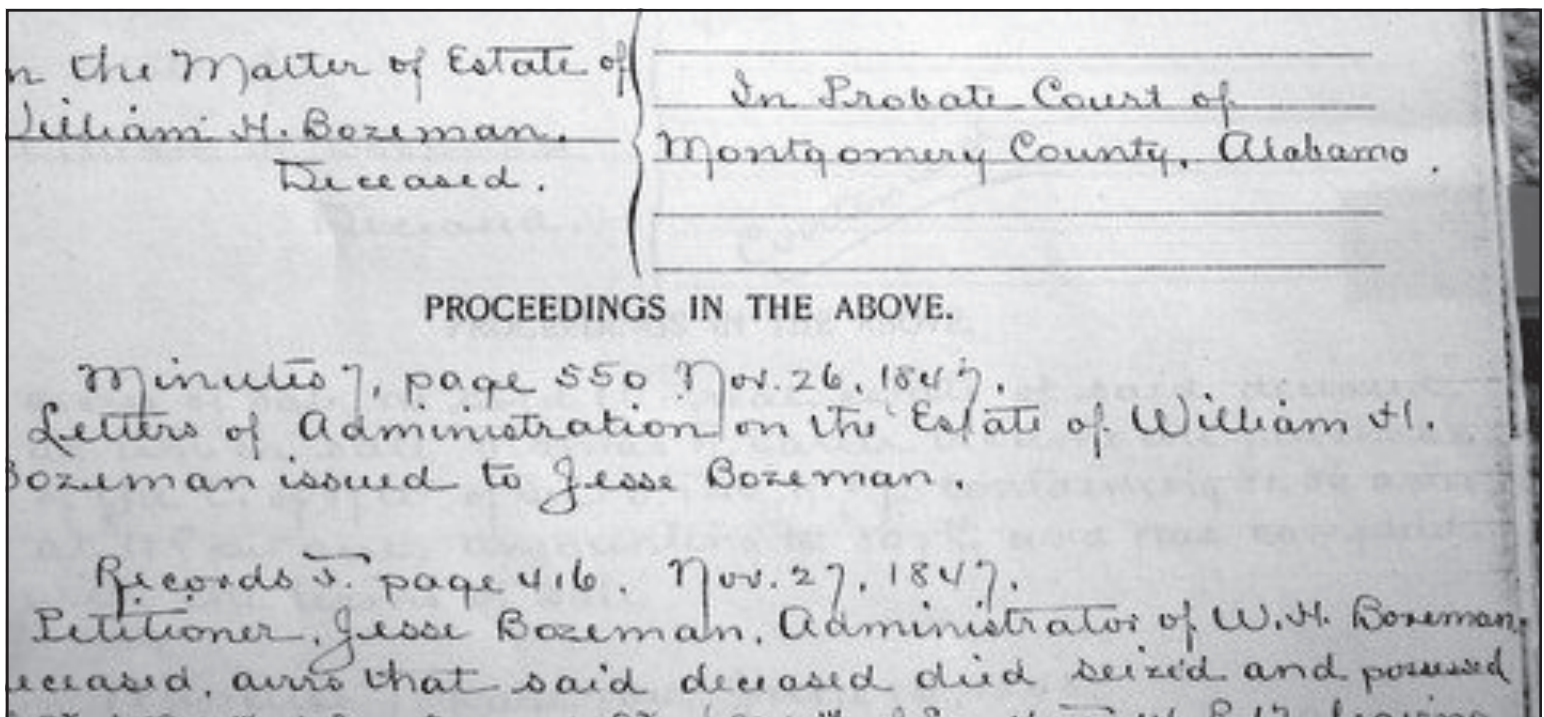 n the Matter of Estate of
William H. Bozeman,
Deceased.
In Probate Court of
Montgomery County, Alabama.
PROCEEDINGS IN THE ABOVE.
Minutes 7, page 550 Nov. 26, 1847.
Letters of Administration on the Estate of William H.
Bozeman issued to Jesse Bozeman.
Records J. page 416. Nov. 27, 1847.
Petitioner, Jesse Bozeman, Administrator of W. H. Bozeman,
eceased, avers that said deceased died seized and possessed